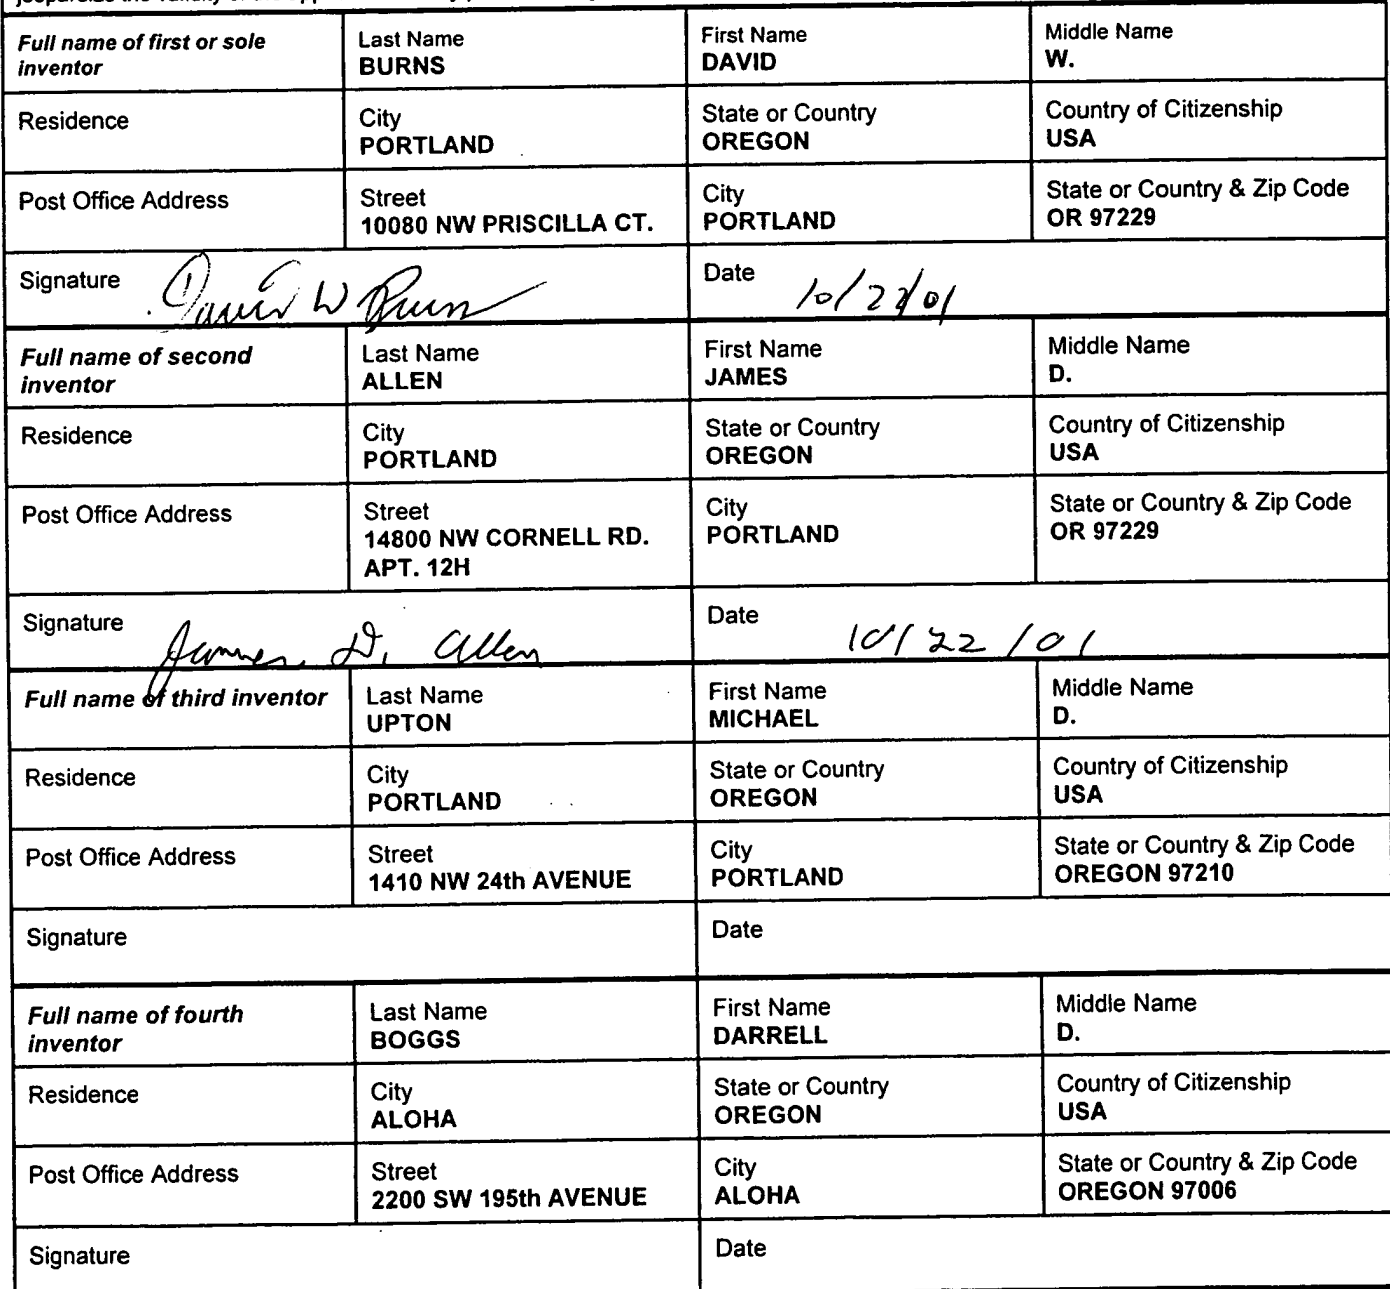 Full name of first or sole inventor
Last Name
BURNS
First Name
DAVID
Middle Name
W.
Residence
City
PORTLAND
State or Country
OREGON
Country of Citizenship
USA
Post Office Address
Street
10080 NW PRISCILLA CT.
City
PORTLAND
State or Country & Zip Code
OR 97229
Signature
David W Burns
Date
10/22/01
Full name of second inventor
Last Name
ALLEN
First Name
JAMES
Middle Name
D.
Residence
City
PORTLAND
State or Country
OREGON
Country of Citizenship
USA
Post Office Address
Street
14800 NW CORNELL RD.
APT. 12H
City
PORTLAND
State or Country & Zip Code
OR 97229
Signature
James D. Allen
Date
10/22/01
Full name of third inventor
Last Name
UPTON
First Name
MICHAEL
Middle Name
D.
Residence
City
PORTLAND
State or Country
OREGON
Country of Citizenship
USA
Post Office Address
Street
1410 NW 24th AVENUE
City
PORTLAND
State or Country & Zip Code
OREGON 97210
Signature
Date
Full name of fourth inventor
Last Name
BOGGS
First Name
DARRELL
Middle Name
D.
Residence
City
ALOHA
State or Country
OREGON
Country of Citizenship
USA
Post Office Address
Street
2200 SW 195th AVENUE
City
ALOHA
State or Country & Zip Code
OREGON 97006
Signature
Date